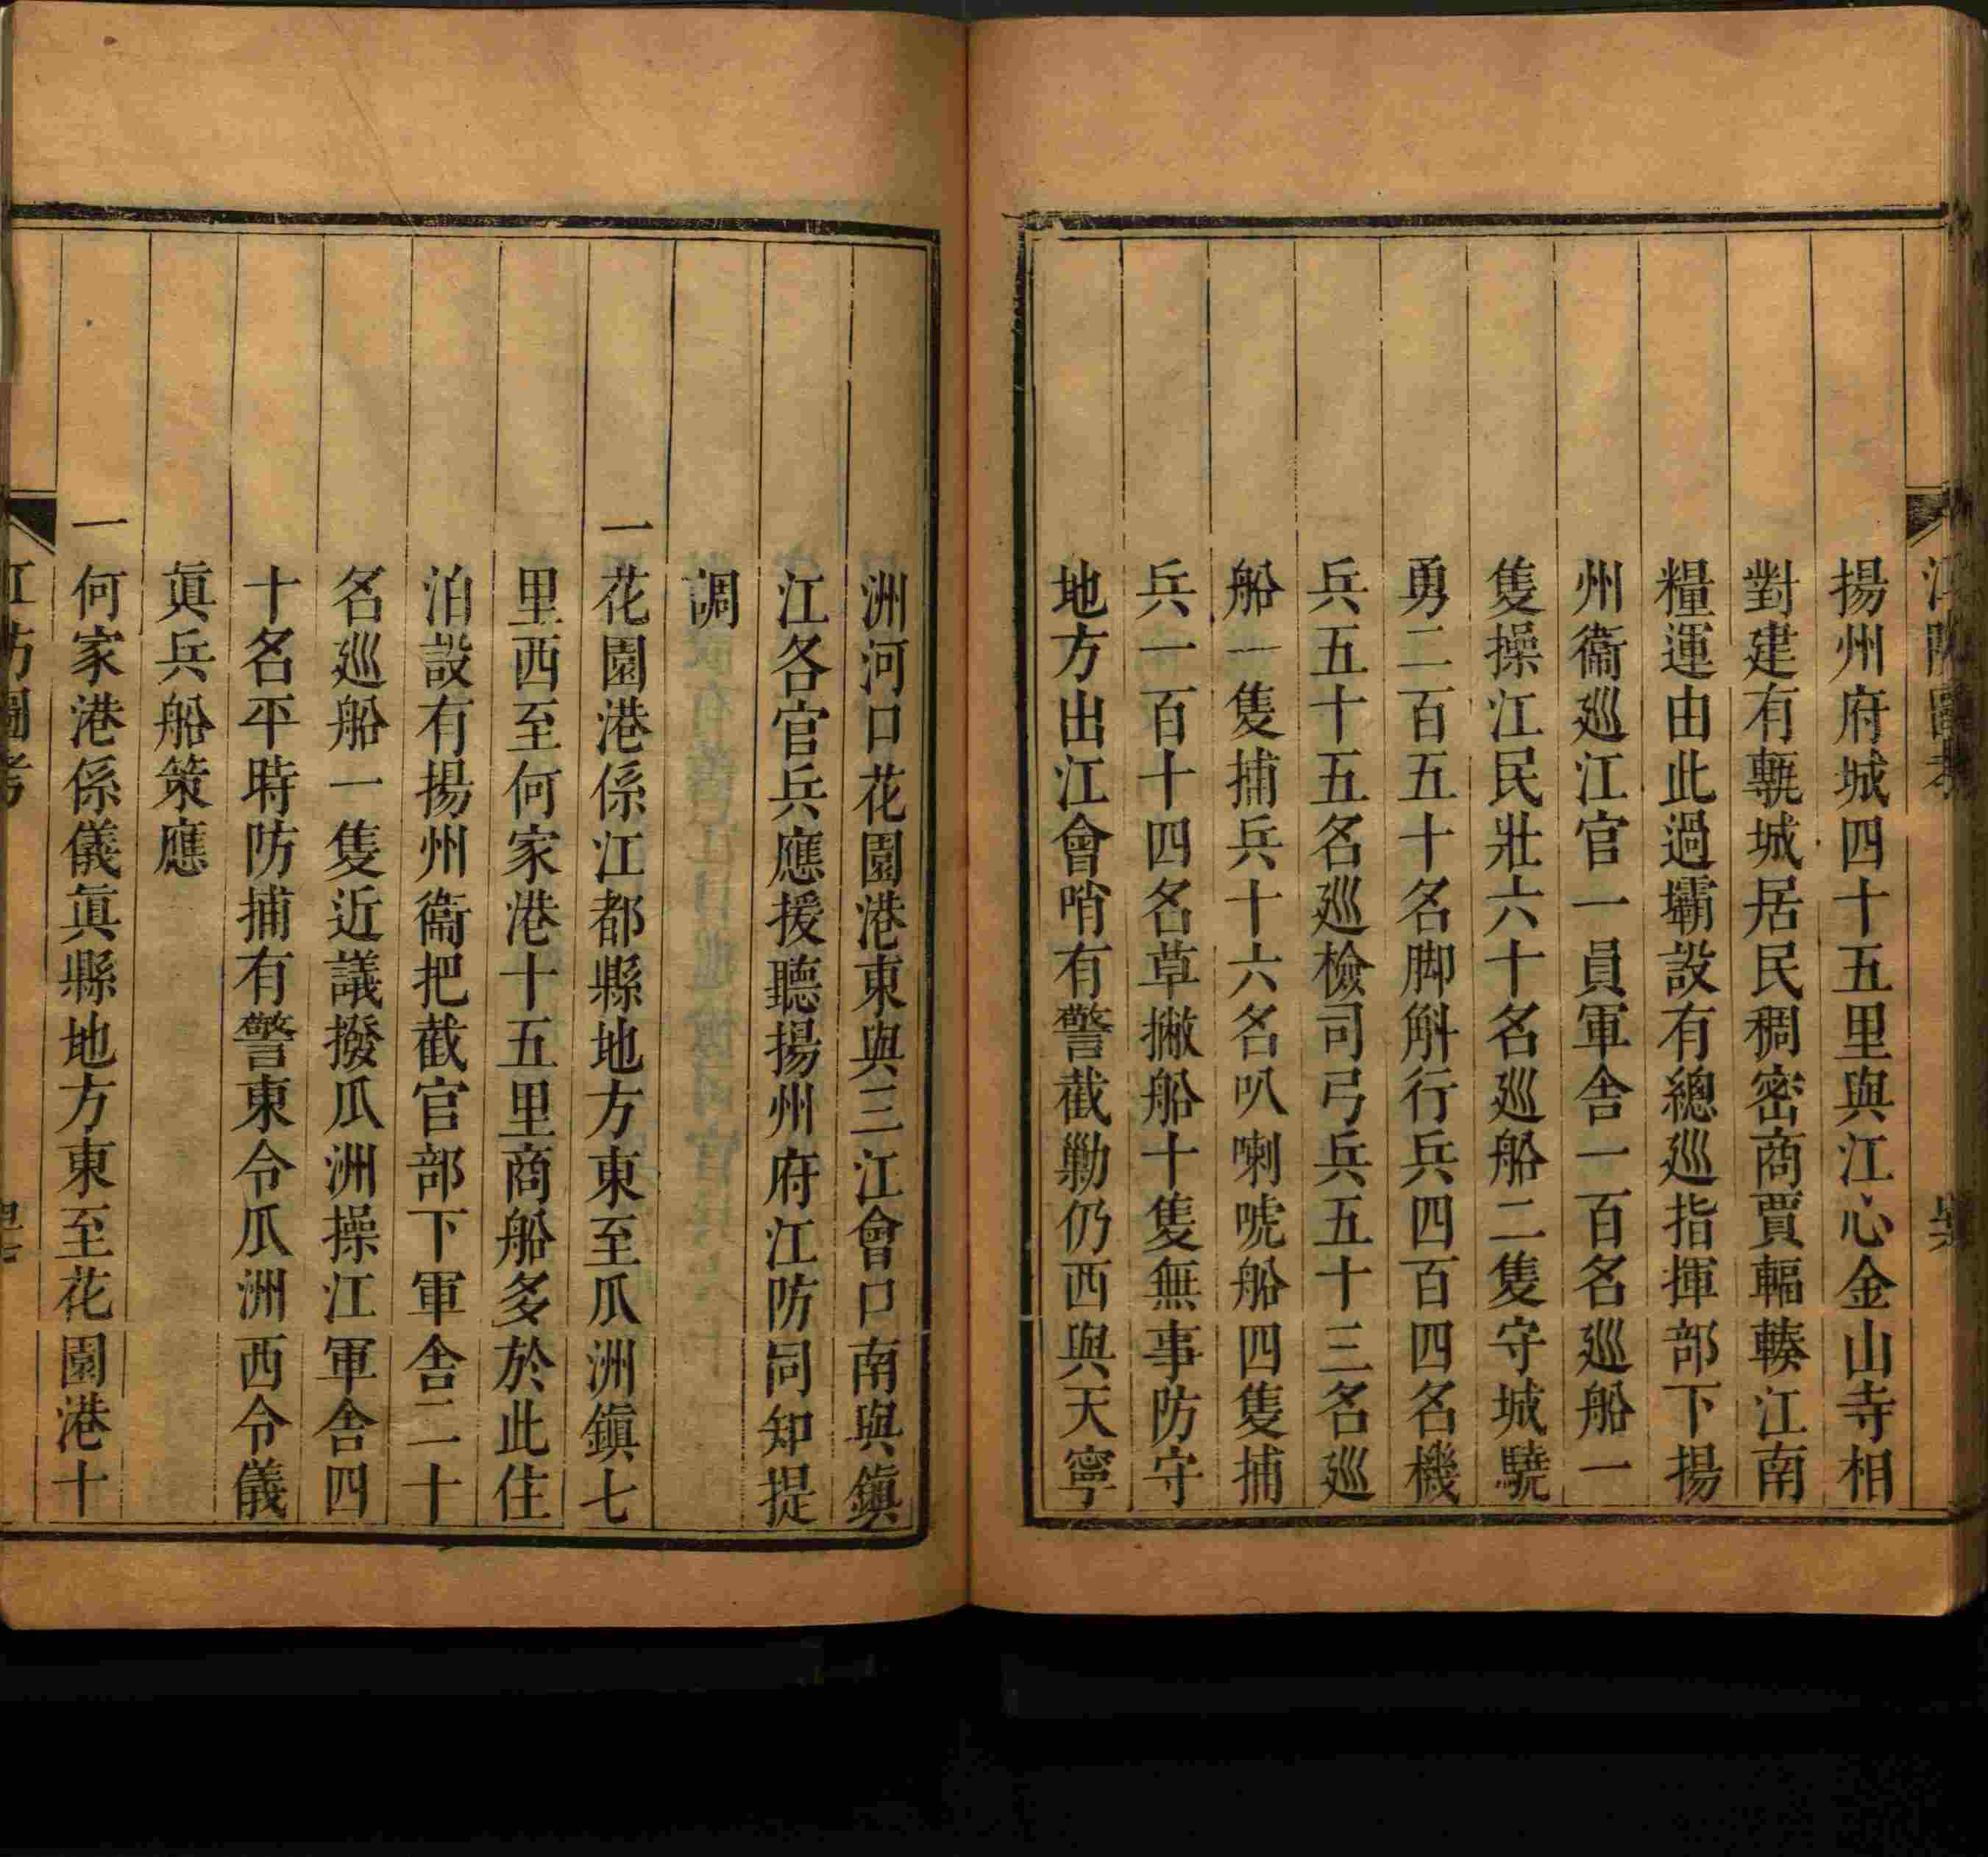 江防圖考
揚州府城四十五里與江心金山寺相
對建有甎城居民稠密商賈輻輳江南
糧運由此過壩設有總巡指揮部下揚
州衞巡江官一員軍舍一百名巡船一
隻操江民壯六十名巡船二隻守城驍
勇二百五十名脚斛行兵四百四名機
兵五十五名巡檢司弓兵五十三名巡
船一隻捕兵十六名叭喇唬船四隻捕
兵一百十四名草撇船十隻無事防守
地方出江會哨有警截勦仍西與天寧
洲河口花園港東與三江會口南與鎭
江各官兵應援聽揚州府江防同知提
調
一花園港係江都縣地方東至瓜洲鎭七
里西至何家港十五里商船多於此住
泊設有揚州衞把截官部下軍舍二十
名巡船一隻近議撥瓜洲操江軍舍四
十名平時防捕有警東令瓜洲西令儀
眞兵船策應
一何家港係儀眞縣地方東至花園港十
江防圖考